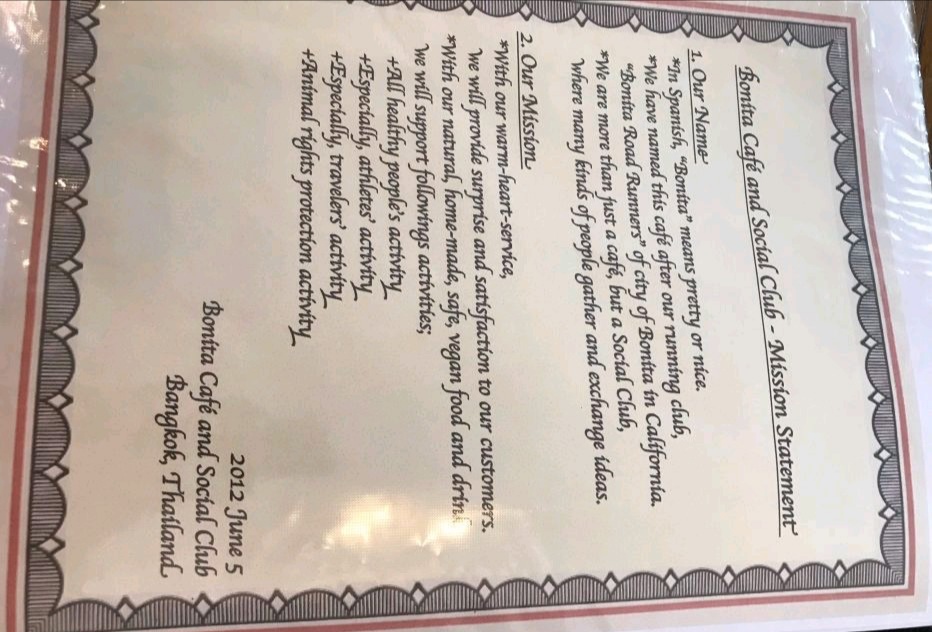 Bonita Café and Social Club - Mission Statement
1. Our Name
*In Spanish, "Bonita" means pretty or nice.
*We have named this café after our running club,
"Bonita Road Runners" of city of Bonita in California.
*We are more than just a café, but a Social Club,
where many kinds of people gather and exchange ideas.
2. Our Mission
*With our warm-heart-service,
we will provide surprise and satisfaction to our customers.
*With our natural, home-made, safe, vegan food and drink
we will support followings activities;
+All healthy people's activity
+Especially, athletes' activity
+Especially, travelers' activity
+Animal rights protection activity
2012 June 5
Bonita Café and Social Club
Bangkok, Thailand